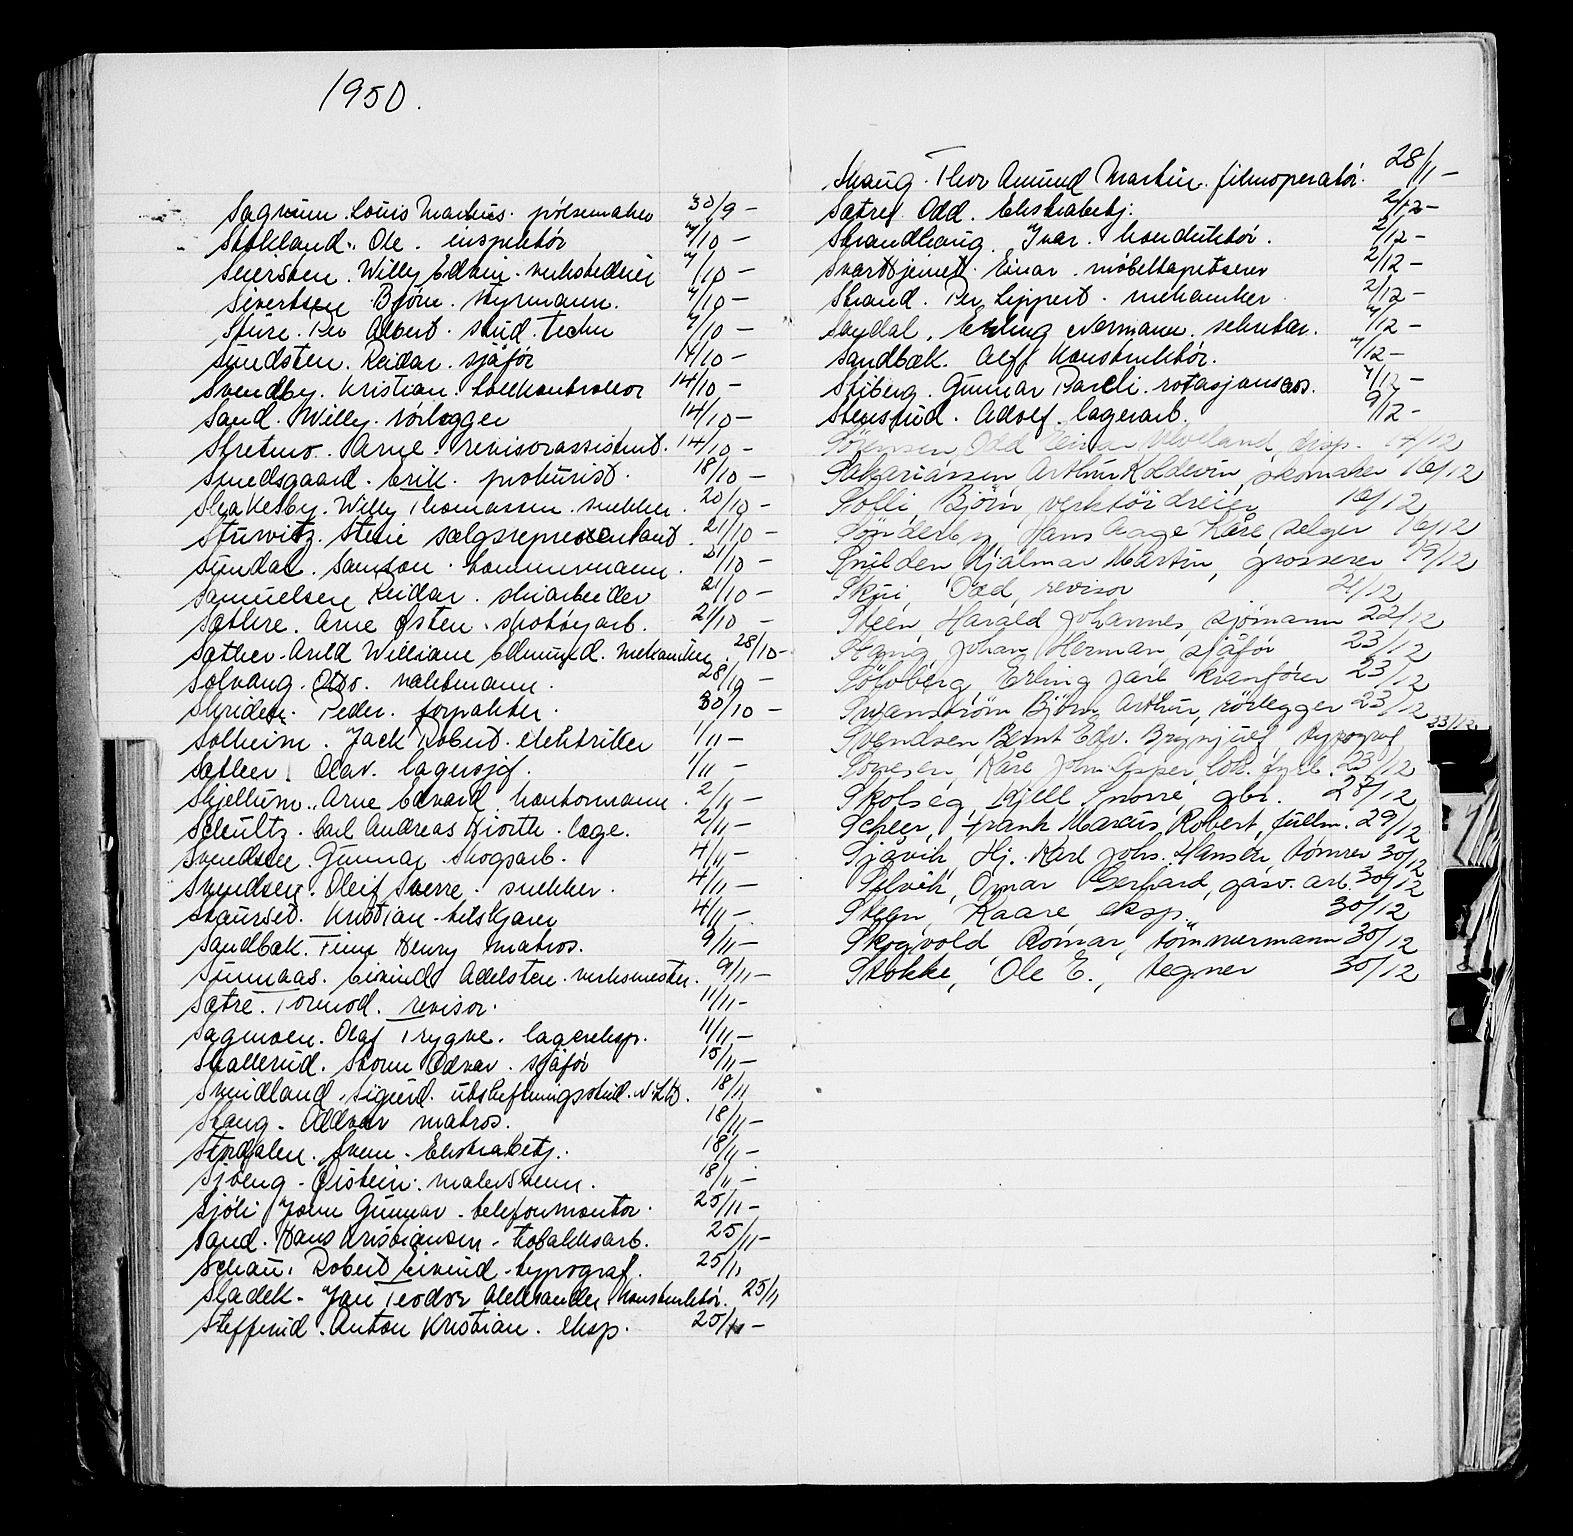 1950.
Sagrum. Louis Martius. pölsemaker 30/9 -
Stokland. Ole. inspektör 7/10 -
Seiersten. Willy Edvin. verkstedeier 7/10 -
Sivertsen Björn. styrmann. 7/10 -
Sture. Per Albert. stud. techn 7/10 -
Sundsten. Reidar. sjåför 14/10 -
Svendby. Kristian. tollkontrollör 14/10 -
Sand. Willy. rörlegger 14/10 -
Stretmo. Arne. revisorassistent. 14/10 -
Smedsgaard. Erik. prokurist. 18/10 -
Slaatesby. Willy Thomassen. snekker. 20/10 -
Sturwitz. Steni salgsrepresentant. 21/10 -
Sundal. Samson. tømmermann. 21/10 -
Samuelsen Reidar. skiarbeider 21/10 -
Sathre. Arne Östen. skotöyarb. 21/10 -
Sather. Arild William Edmund. mekaniker. 28/10 -
Solvang. Otto. valsemann. 28/10 -
Skrideb. Peder. forpakter. 30/10 -
Solheim. Jack Robert. elektriker 1/11 -
Sather. Olav. lagersjef. 1/11 -
Skjellum. Arne Edvard kontormann. 2/11 -
Schultz. Carl Andreas Hiorth. lege. 2/11 -
Svendsen Gunnar. skogsarb. 4/11 -
Svendsen. Oleif Sverre. snekker. 4/11 -
Staurset. Kristian. tilskjærer 4/11 -
Sandbæk. Finn Henry matros. 9/11 -
Sunnaas. Eivind Adelsten. verksmester. 9/11 -
Sætre. Tormod. revisor. 11/11 -
Sagmoen. Olaf Trygve. lagereksp. 11/11 -
Skallerud. Storm Odvar. sjåför 15/11 -
Smidland. Sigurd. utskiftningsstud. N.L.H. 18/11
Stang. Oddvar matros. 18/11 -
Stordalen. Svenn. Ekstrabetj. 18/11 -
Sjöeng. Öistein. malersvenn. 18/11 -
Sjöli John Gunnar. telefonmontör. 25/11 -
Sand. Hans Kristiansen. tobakksarb. 25/11 -
Schau. Robert Eivind. typograf. 25/11
Sladek. Jan Teodor Aleksander konstruktör. 25/11
Steffenrud. Anton Kristian. eksp. 25/11 -
Skaug. Thor Amund Martin. filmoperatör. 28/11 -
Sætref. Odd. Ekstrabetj. 2/12 -
Strandhaug. Ivar. konduktör. 2/12 -
Svarttjernet. Einar. möbeltapetserer 2/12 -
Strand. Per Lippert. mekaniker 2/12 -
Sandal. Erling Normann. sekretær. 7/12 -
Sandbæk. Alff konstruktör. 7/12 -
Stiberg. Gunnar Pareli. rotasjonsass. 7/12 -
Stensrud. Adolf. lagerarb. 9/12 -
Sörensen, Odd Einar Cleveland, disp. 14/12
Sakariassen Arthur Koldevin, skomaker 16/12
Solli, Björn, verktöidreier 16/12
Sönderby, Hans Aage Kåre, selger 16/12
Snilden, Hjalmar Martin, grosserer 19/12
Skui, Odd, revisor 21/12
Steen, Harald Johannes, sjömann 22/12
Stang, Johan Herman, sjåför 23/12
Sölvberg, Erling Jarl kranförer 23/12
Svanström Björn Arthur, rörlegger 23/12
Svendsen Bernt Edv. Brynjulf, typograf 23/12
Sönesen, Kåre John Asper, lok. fyrb. 23/12
Skolseg, Kjell Snorre, gbr. 28/12
Scheer, Frank Marcus Robert, fullm. 29/12
Sjåvik, Hj. Karl Johs. Hansen, tömrer 30/12
Selvik, Omar Gerhard, gasv. arb. 30/12
Steen, Kaare eksp. 30/12
Skogvold Romar, tömmermann 30/12
Stokke, Ole E., tegner 30/12